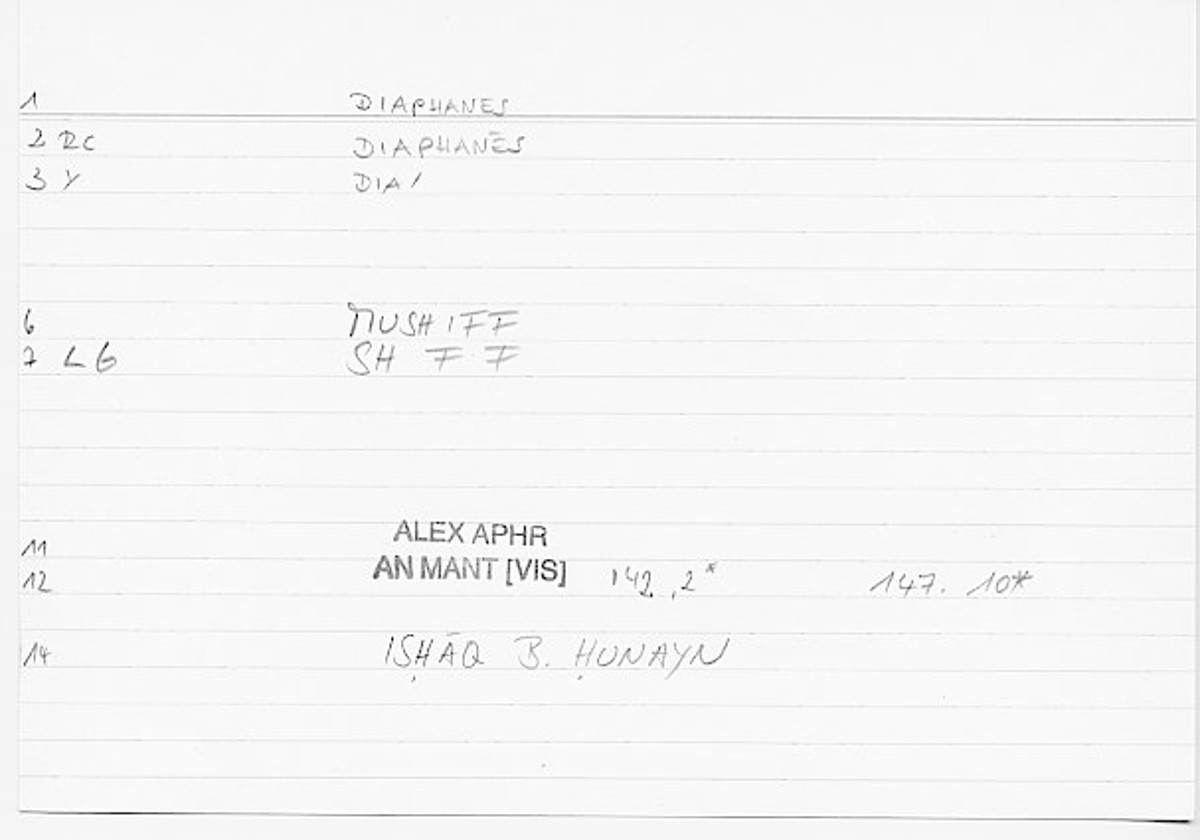 1 DIAPHANES
2 RC DIAPHANĒS
3 Y DIA/
6 MUSHIFF
7 LG SH F F
ALEX APHR
11
AN MANT [VIS] 142,2* 147. 10*
12
14 ISḤĀQ B. ḤUNAYN